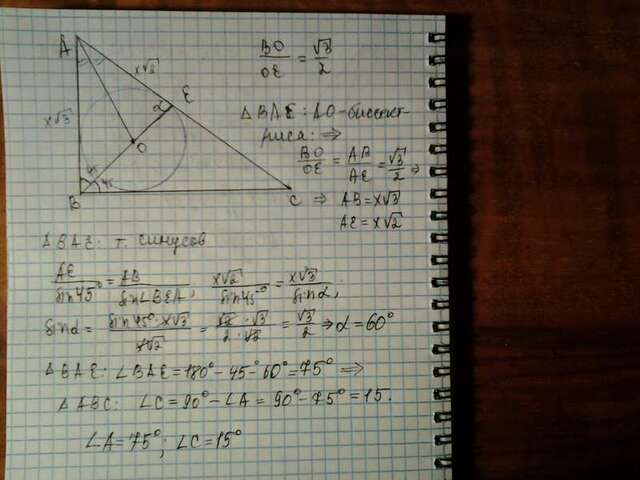 A
x√3
E
α
x√3
O
45
45
B
C
BO/OE = √3/2
△BAE: AO - биссект-
риса: ⇒
BO/OE = AB/AE = √3/2 ⇒
⇒ AB = x√3
AE = x√2
△BAE: т. синусов
AE/sin45° = AB/sin∠BEA; x√2/sin45° = x√3/sinα;
sinα = sin45°·x√3/x√2 = √2·√3/2·√2 = √3/2 ⇒ α = 60°
△BAE: ∠BAE = 180° - 45° - 60° = 75° ⇒
△ABC: ∠C = 90° - ∠A = 90° - 75° = 15.
∠A = 75°; ∠C = 15°